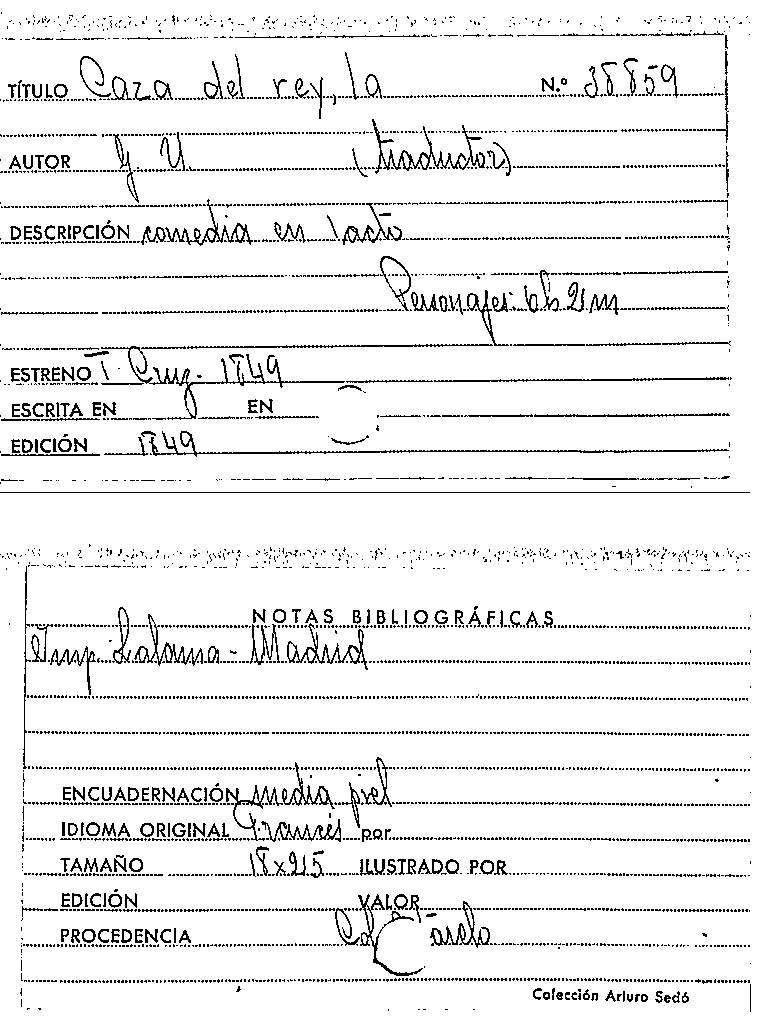 TÍTULO Caza del rey, la N.º 38859
AUTOR G. U. (traductor)
DESCRIPCIÓN comedia en 1 acto
Personajes: 6h 2m
ESTRENO T. Cruz. 1849
ESCRITA EN EN
EDICIÓN 1849
NOTAS BIBLIOGRÁFICAS
Imp. Lalama - Madrid
ENCUADERNACIÓN media piel
IDIOMA ORIGINAL Francés por
TAMAÑO 18x215 ILUSTRADO POR
EDICIÓN VALOR
PROCEDENCIA
Colección Arturo Sedó